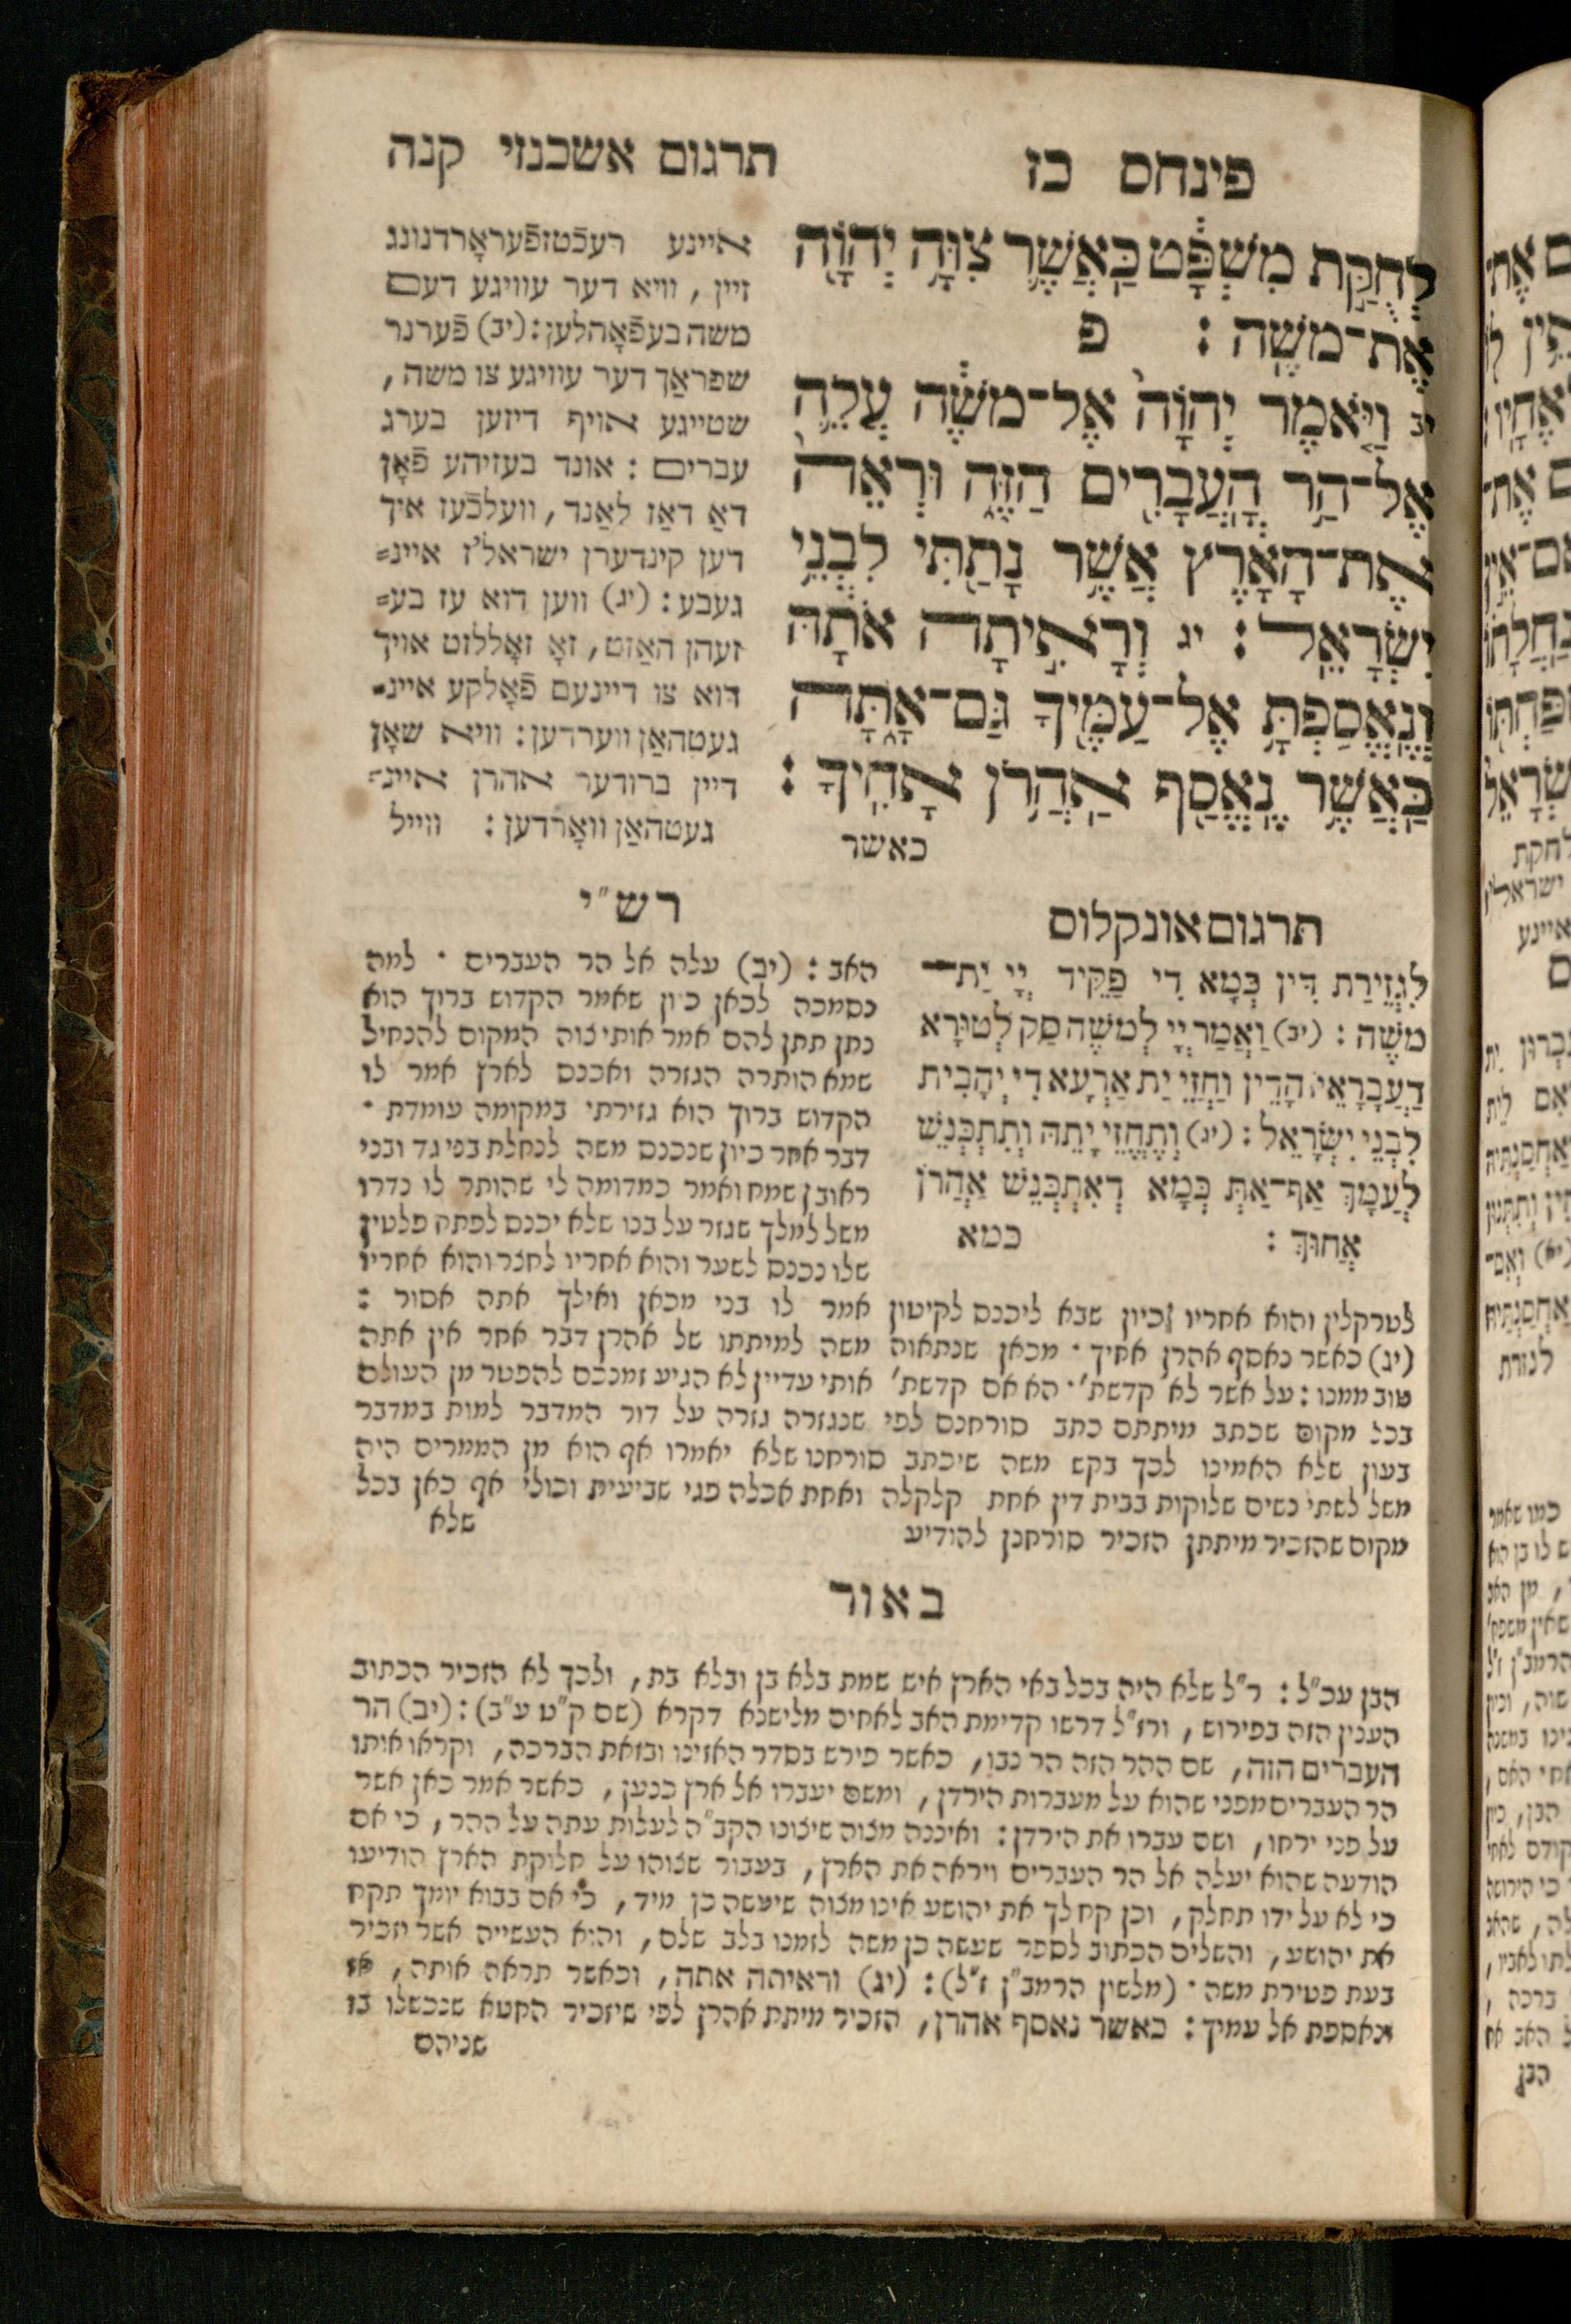 פינחס כז
תרגום אשכנזי קנה
לְחֻקַּת מִשְׁפָּט כַּאֲשֶׁר צִוָּה יְהוָֹה
אֶת־משֶׁה : פ
יב וַיֹּאמֶר יְהוָֹה אֶל־משֶׁה עֲלֵה
אֶל־הַר הָעֲבָרִים הַזֶּה וּרְאֵה
אֶת־הָאָרֶץ אֲשֶׁר נָתַתִּי לִבְנֵי
יִשְׂרָאֵל : יג וְרָאִיתָה אֹתָהּ
וְנֶאֱסַפְתָּ אֶל־עַמֶּיךָ גַּם־אָתָּה
כַּאֲשֶׁר נֶאֱסַף אַהֲרֹן אָחִיךָ :
כאשר
איינע רעכֿטזפֿעראָרדנונג
זיין , וויא דער עוויגע דעם
משה בעפֿאָהלען : (יב) פֿערנר
שפראַך דער עוויגע צו משה ,
שטייגע אויף דיזען בערג
עברים : אונד בעזיהע פֿאָן
דאַ דאַז לאַנד , וועלכֿעז איך
דען קינדערן ישראל'ז איינ=
געבע : (יג) ווען דוא עז בע=
זעהן האַזט , זאָ זאָללזט אויך
דוא צו דיינעם פֿאָלקע איינ=
געטהאַן ווערדען : וויא שאָן
דיין ברודער אהרן איינ=
געטהאַן וואָרדען : ווייל
תרגום אונקלוס
לִגְזֵירַת דִּין כְּמָא דִי פַקֵּיד יְיָ יַת־
משֶׁה : (יב) וַאֲמַר יְיָ לְמשֶׁה סַק לְטוּרָא
דַעֲבָרָאֵי הָדֵין וַחֲזֵי יַת אַרְעָא דִי יְהָבִית
לִבְנֵי יִשְׂרָאֵל : (יג) וְתֶחֱזֵי יָתֵהּ וְתִתְכְּנֵשׁ
לְעַמָּךְ אַף־אַתְּ כְּמָא דְאִתְכְּנֵשׁ אַהֲרֹן
אֲחוּךְ : כמא
רש״י
האב : (יב) עלה אל הר העברים · למה
נסמכה לכאן כיון שאמר הקדוש ברוך הוא
נתן תתן להם אמר אותי צוה המקום להנחיל
שמא הותרה הגזרה ואכנס לארץ אמר לו
הקדוש ברוך הוא גזירתי במקומה עומדת ·
דבר אחר כיון שנכנס משה לנחלת בני גד ובני
ראובן שמח ואמר כמדומה לי שהותר לו נדרו
משל למלך שגזר על בנו שלא יכנס לפתח פלטין
שלו נכנס לשער והוא אחריו לחצר והוא אחריו
לטרקלין והוא אחריו וכיון שבא ליכנס לקיטון אמר לו בני מכאן ואילך אתה אסור :
(יג) כאשר נאסף אהרן אחיך · מכאן שנתאוה משה למיתתו של אהרן דבר אחר אין אתה
טוב ממנו : על אשר לא קדשת' · הא אם קדשת' אותי עדיין לא הגיע זמנכם להפטר מן העולם
בכל מקום שכתב מיתתם כתב סורחנם לפי שנגזרה גזרה על דור המדבר למות במדבר
בעון שלא האמינו לכך בקש משה שיכתב סורחנו שלא יאמרו אף הוא מן הממרים היה
משל לשתי נשים שלוקות בבית דין אחת קלקלה ואחת אכלה פגי שביעית וכולי אף כאן בכל
מקום שהזכיר מיתתן הזכיר סורחנן להודיע שלא
באור
הבן עכ״ל : ר״ל שלא היה בכל באי הארץ איש שמת בלא בן ובלא בת , ולכך לא הזכיר הכתוב
הענין הזה בפירוש , ורז״ל דרשו קדימת האב לאחים מלישנא דקרא (שם ק״ט ע״ב) : (יב) הר
העברים הזה , שם ההר הזה הר נבו , כאשר פירש בסדר האזינו ובזאת הברכה , וקראו אותו
הר העברים מפני שהוא על מעברות הירדן , ומשם יעברו אל ארץ כנען , כאשר אמר כאן אשר
על פני ירחו , ושם עברו את הירדן : ואיננה מצוה שיצונו הקב״ה לעלות עתה על ההר , כי אם
הודעה שהוא יעלה אל הר העברים ויראה את הארץ , בעבור שצוהו על חלוקת הארץ הודיעו
כי לא על ידו תחלק , וכן קח לך את יהושע אינו מצוה שיעשה כן מיד , כי אם בבוא יומך תקח
את יהושע , והשלים הכתוב לספר שעשה כן משה לזמנו בלב שלם , והוא העשייה אשר יזכיר
בעת פטירת משה · (מלשון הרמב״ן ז״ל) : (יג) וראיתה אתה , וכאשר תראה אותה , אז
ונאספת אל עמיך : כאשר נאסף אהרן , הזכיר מיתת אהרן לפי שיזכיר החטא שנכשלו בו
שניהם